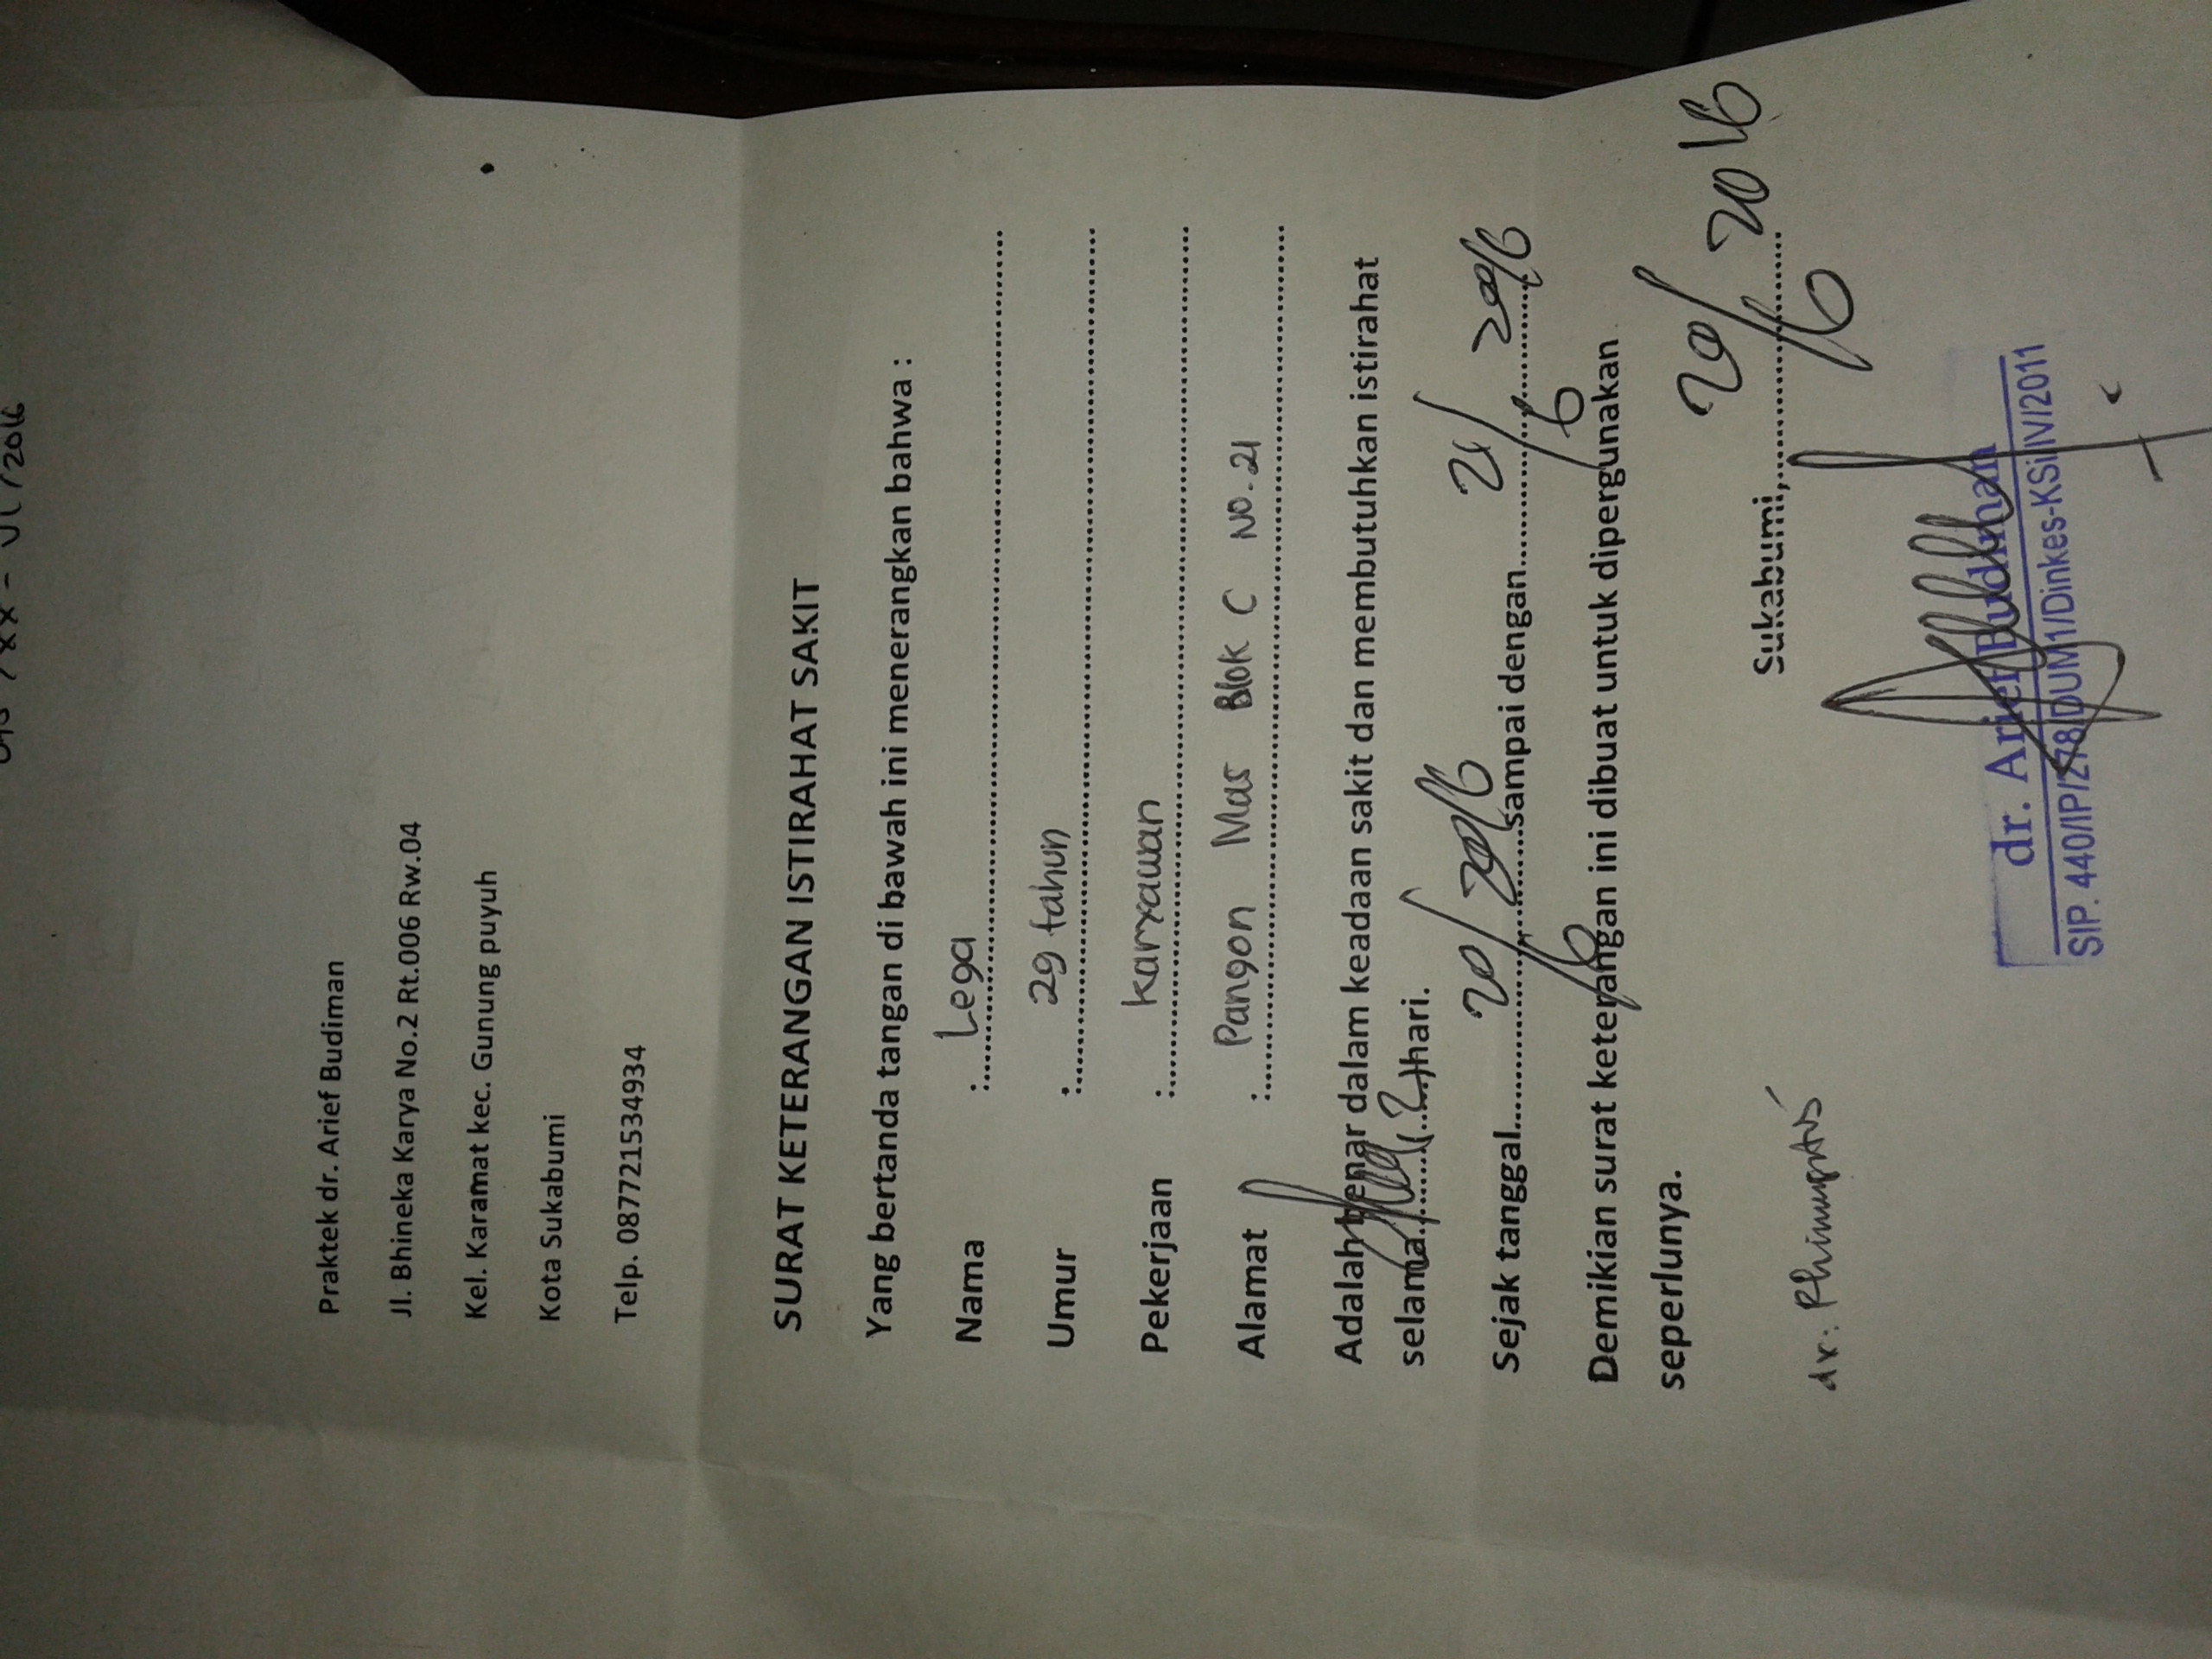 /XX - VI/2016
Praktek dr. Arief Budiman
Jl. Bhineka Karya No.2 Rt.006 Rw.04
Kel. Karamat kec. Gunung puyuh
Kota Sukabumi
Telp. 087721534934
SURAT KETERANGAN ISTIRAHAT SAKIT
Yang bertanda tangan di bawah ini menerangkan bahwa :
Nama : Lega
Umur : 29 tahun
Pekerjaan : Karyawan
Alamat : Pangon Mas Blok C NO. 21
Adalah benar dalam keadaan sakit dan membutuhkan istirahat
selama..........(...2...)hari.
Sejak tanggal....20/6 2016....sampai dengan....21/6 2016
Demikian surat keterangan ini dibuat untuk dipergunakan
seperlunya.
Sukabumi,....20/6 2016
dx:
dr. Arief Budiman
SIP. 440/IP/278/DUM1/Dinkes-KSi/IV/2011